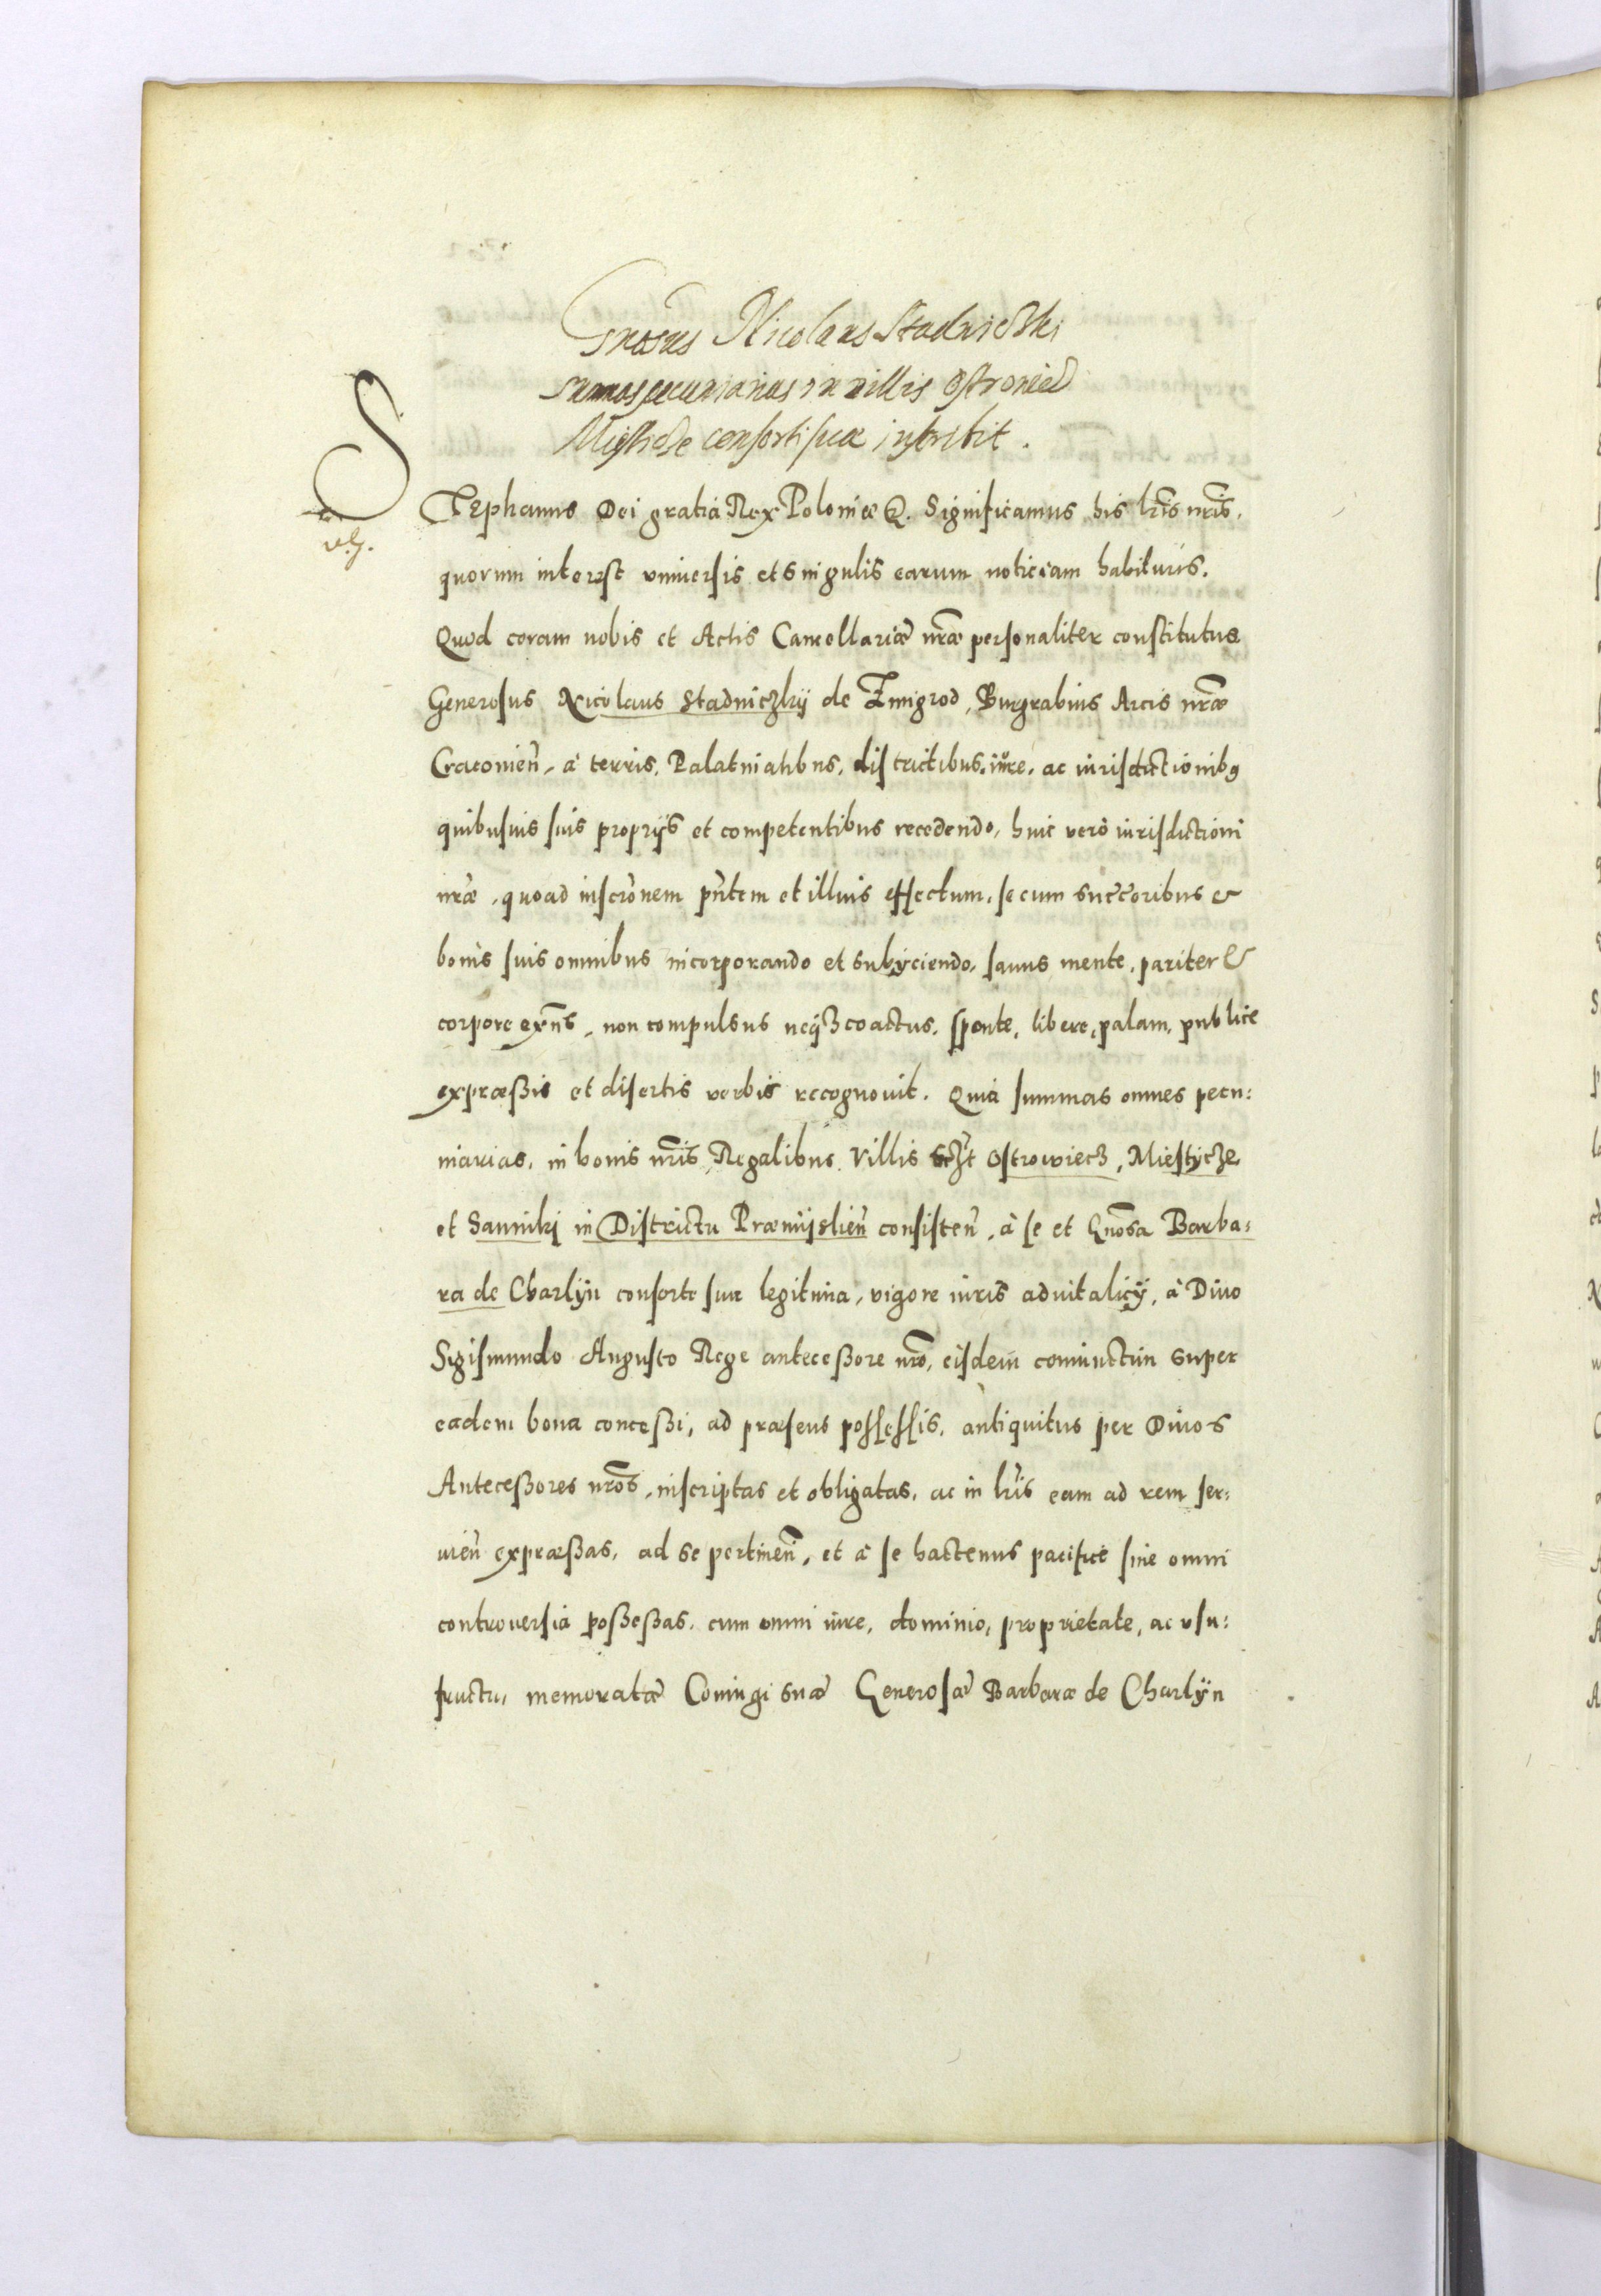 Gnosus Nicolaus Stadniczki
summas pecuniarias in villis Ostrowiecz
consorti suæ inscribit.
STephanus Dei gratia Rex Poloniæ &. Significamus his lr̃is nr̃is.
quorum interest vniuersis et singulis earum noticiam habituris.
Quod coram nobis et Actis Cancellariæ nr̃æ personaliter constitutus
Generosus Nicolaus Stadniczkÿ de Zmigrod, Burgrabius Arcis nr̃æ
Cracouien̄, à terris, Palatinatibus, districtibus, iure, ac iurisdictionibꝫ
quibusuis suis proprijs et competentibus recedendo, huic verò iurisdictioni
nr̃æ, quoad inscr̃onem pñtem et illius effectum, se cum succ̃oribus &
bonis suis omnibus incorporando et subÿciendo, sanus mente, pariter &
corpore exñs, non compulsus neqꝫ coactus, sponte, libere, palam, publice
expræßis et disertis verbis recognouit. Quia summas omnes pecu:
niarias, in bonis nr̃is Regalibus Villis sczt̃ Ostrowiecz, Miestÿcze,
et Sanniki in Districtu Præmÿslien̄ consisten̄, à se et Gnosa Barba:
ra de Charlÿn consorte sua legitima, vigore iuris aduitalicÿ, à Diuo
Sigismundo Augusto Rege anteceßore nr̃o, eisdem coniunctim super
eadem bona conceßi, ad præsens possessis, antiquitus per Diuos
Anteceßores nr̃os, inscriptas et obligatas, ac in lr̃is eam ad rem ser:
uien̄ expræßas, ad se pertinen̄, et à se hactenus pacificè sine omni
controuersia poßeßas, cum omni iure, dominio, proprietate, ac vsu:
fructu, memoratæ Coniugi suæ Generosæ Barbaræ de Charlÿn